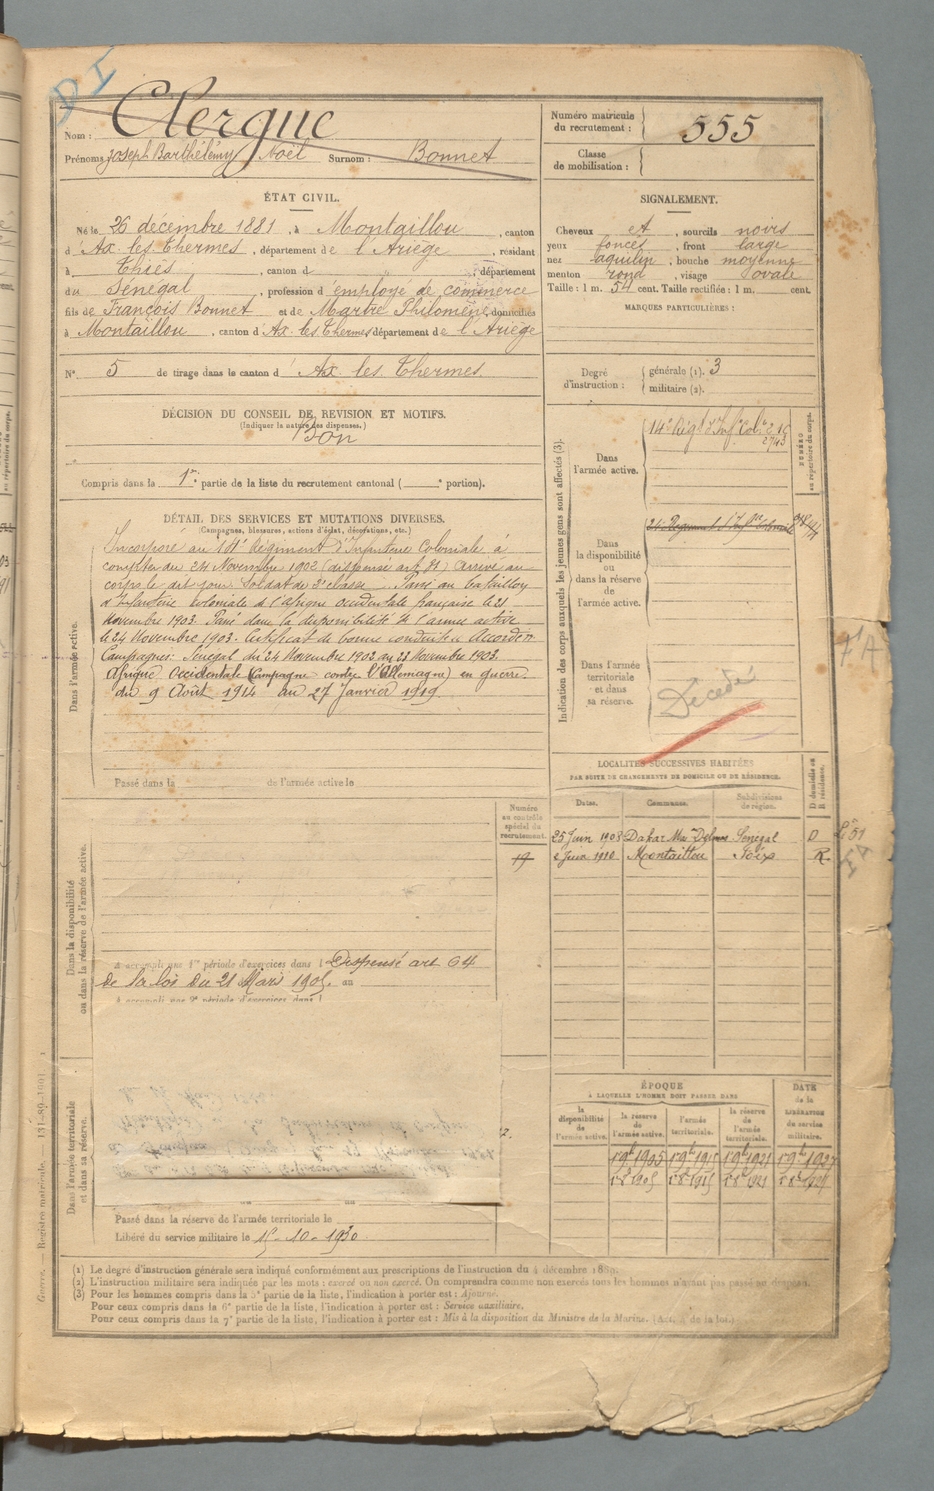 D I
Nom : Clergue
Prénoms Joseph Barthélémy Noël Surnom : Bonnet
Numéro matricule du recrutement : 555
Classe de mobilisation :
ÉTAT CIVIL.
Né le 26 décembre 1881, à Montaillou, canton
d'Ax-les-Thermes, département de l'Ariège, résidant
à Thiès, canton d , département
du Sénégal, profession d'employé de commerce
fils de François Bonnet et de Marthe Philomène, domiciliés
à Montaillou, canton d'Ax-les-Thermes, département de l'Ariège
N° 5 de tirage dans le canton d'Ax les Thermes.
SIGNALEMENT.
Cheveux et , sourcils noirs
yeux foncés , front large
nez aquilin , bouche moyenne
menton rond , visage ovale
Taille : 1 m. 54 cent. Taille rectifiée : 1 m. cent.
MARQUES PARTICULIÈRES :
Degré d'instruction : générale (1). 3
militaire (2).
DÉCISION DU CONSEIL DE REVISION ET MOTIFS.
(Indiquer la nature des dispenses.)
Bon
Compris dans la 1re partie de la liste du recrutement cantonal ( e portion).
DÉTAIL DES SERVICES ET MUTATIONS DIVERSES.
(Campagnes, blessures, actions d'éclat, décorations, etc.)
Dans l'armée active.
Incorporé au 14e Régiment d'Infanterie Coloniale à
compter du 24 Novembre 1902 (dispensé art 21) Arrivé au
corps le dit jour Soldat de 2e classe. Passé au bataillon
d'Infanterie coloniale de l'Afrique occidentale française le 21
Novembre 1903. Passé dans la disponibilité de l'armée active
le 24 Novembre 1903. Certificat de bonne conduite accordé.
Campagnes: Sénégal du 24 Novembre 1902 au 23 Novembre 1903.
Afrique Occidentale (Campagne contre l'Allemagne) en guerre
du 9 Août 1914 au 27 Janvier 1919.
Passé dans la de l'armée active le
Indication des corps auxquels les jeunes gens sont affectés (3).
NUMÉRO au répertoire du corps.
Dans l'armée active. 14e Régt d'Infie Colle
Dans la disponibilité ou dans la réserve de l'armée active.
Dans l'armée territoriale et dans sa réserve. Décédé
LOCALITÉS SUCCESSIVES HABITÉES
PAR SUITE DE CHANGEMENTS DE DOMICILE OU DE RÉSIDENCE.
Dates. Communes. Subdivisions de région. D domicile ou R résidence.
25 Juin 1908 Dakar Sénégal D
2 Juin 1910 Montaillou Foix R.
Numéro au contrôle spécial du recrutement.
19
Dans la disponibilité ou dans la réserve de l'armée active.
A accompli une 1re période d'exercices dans l Dispensé art 64
de la loi du 21 Mars 1905. au
A accompli une 2e période d'exercices dans l
Dans l'armée territoriale et dans sa réserve.
Passé dans la réserve de l'armée territoriale le
Libéré du service militaire le 15-10-1930
ÉPOQUE
À LAQUELLE L'HOMME DOIT PASSER DANS
la disponibilité de l'armée active. la réserve de l'armée active. l'armée territoriale. la réserve de l'armée territoriale.
DATE de la LIBÉRATION du service militaire.
(1) Le degré d'instruction générale sera indiqué conformément aux prescriptions de l'instruction du 4 décembre 1889.
(2) L'instruction militaire sera indiquée par les mots : exercé ou non exercé. On comprendra comme non exercés tous les hommes n'ayant pas passé au drapeau.
(3) Pour les hommes compris dans la 5e partie de la liste, l'indication à porter est : Ajourné.
Pour ceux compris dans la 6e partie de la liste, l'indication à porter est : Service auxiliaire.
Pour ceux compris dans la 7e partie de la liste, l'indication à porter est : Mis à la disposition du Ministre de la Marine.
Guerre. — Registre matricule.